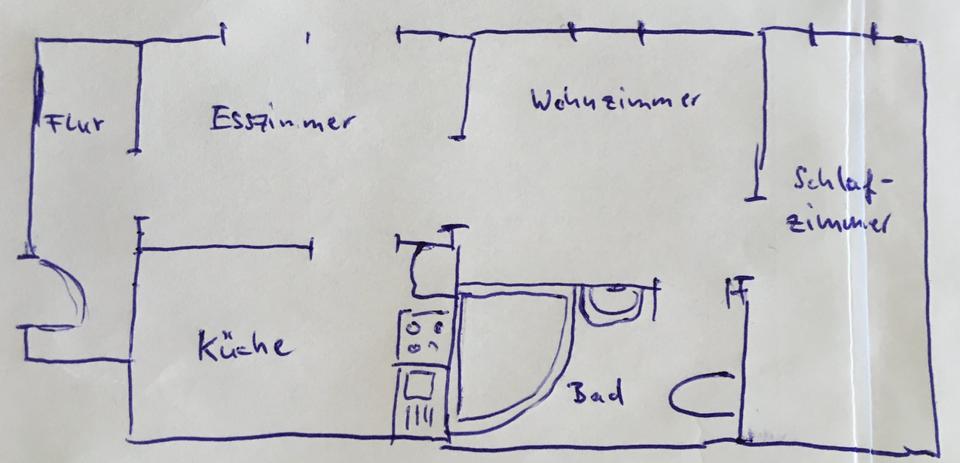 Flur
Esszimmer
Wohnzimmer
Schlaf-
zimmer
Küche
Bad